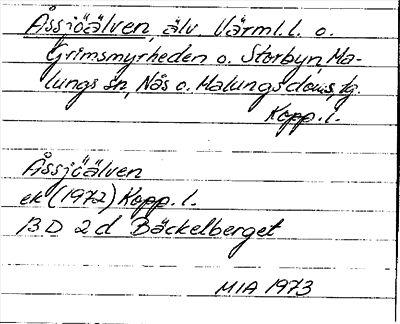 Åssjöälven, älv. Värml.l. o.
Grimsmyrheden o. Storbyn, Ma-
lungs sn, Nås o. Malungs doms. tg.
Kopp. l.
Åssjöälven
ek (1972) Kopp. l.
13D 2d Bäckelberget
MIA 1973